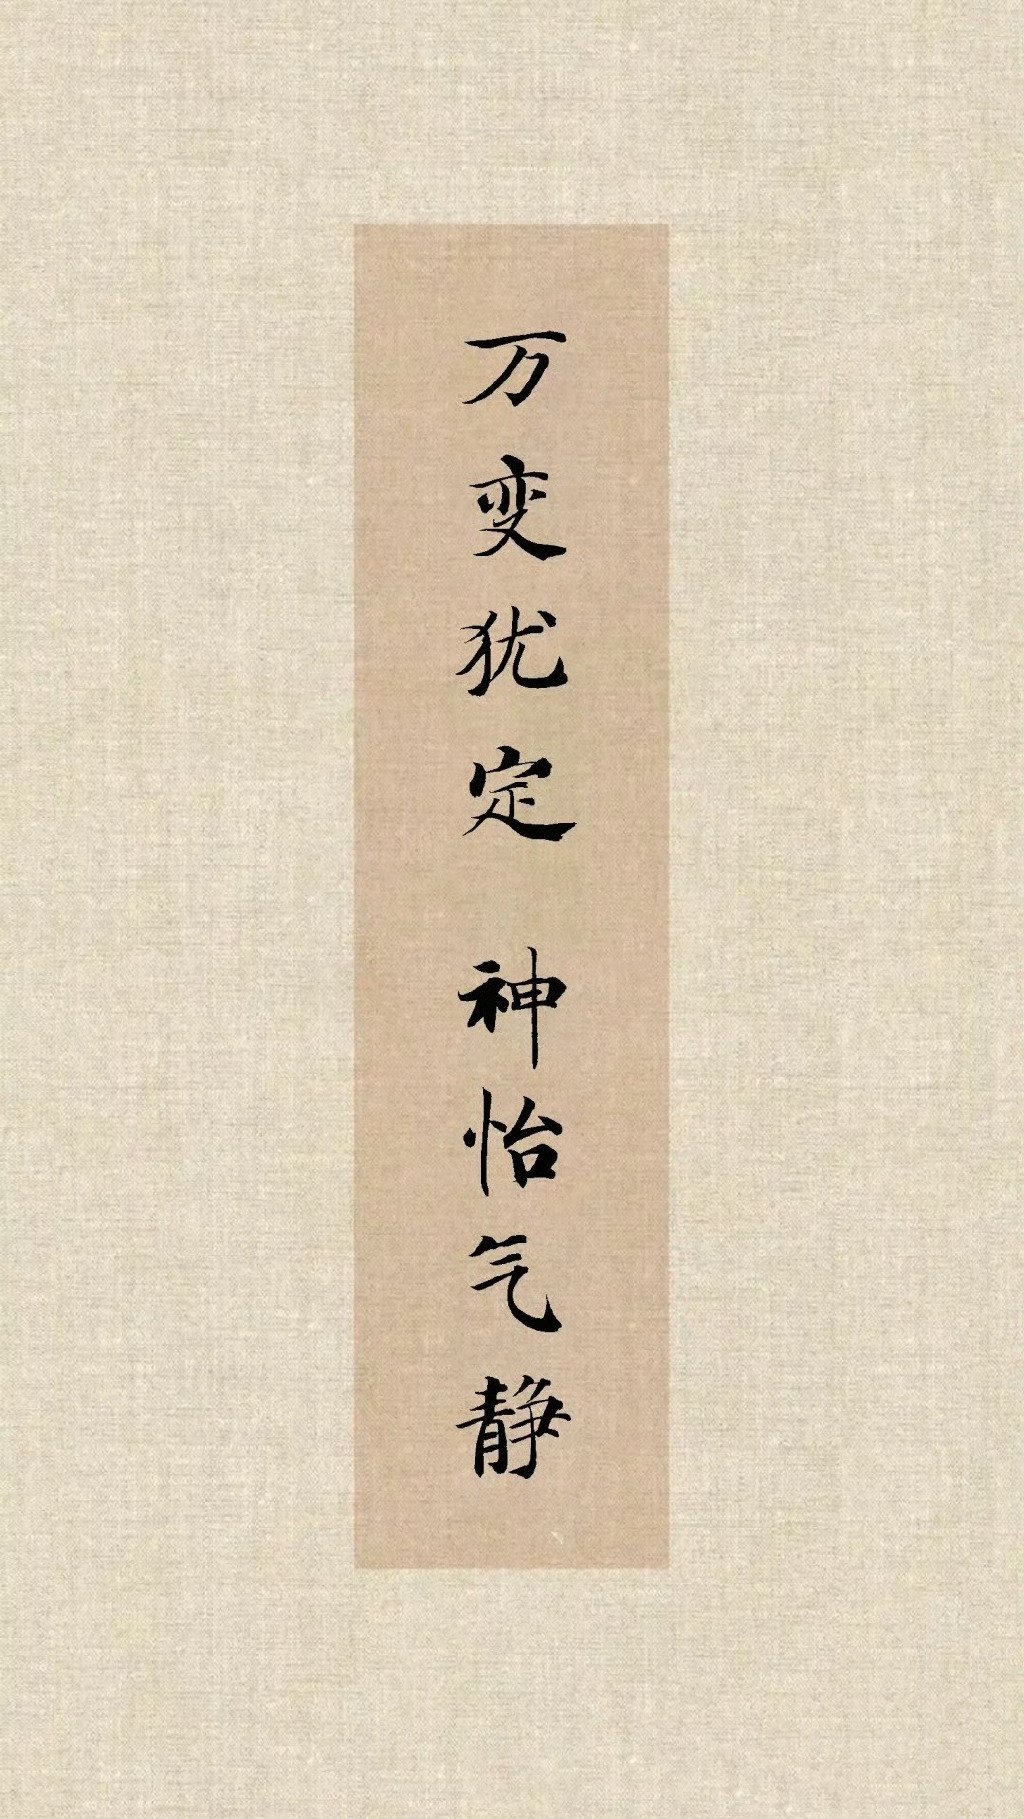 万变犹定 神怡气静